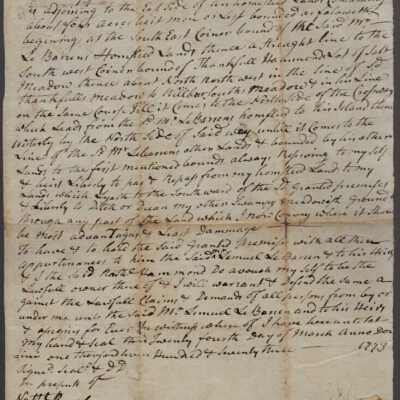 is adjoining to the East side of his homested Lands Containing
about four acres be it more or Less bounded as follows that
beginning at the South East Corner bound of the Said Mr
Le Barons Homsted Land, thence a straight line to the
South west Corner bound of Thankfull Hammonds Lot of Salt
Meadow thence about North North west in the line of Sd
thankfulls meadow & Wilbor Southworths Meadow & in his Line
on the Same Course Till it Comes to the North Side of the
which Leads from the Sd Mr Le Barons homsted to his Island thence
Westerly by the North Side of Said way untill it Comes to the
Line of the Sd Mr Lebarons other Lands & bounded by his other
Lands to the first mentioned bounds always Reserving to my self
& heirs Liberty to pass & Repass from my homsted Land to my
Land which Lyeth to the Southward of the Sd granted premises
& Liberty to ditch or drean my other Swampy meadowish ground
through any part of the Land which I now Convey where it Shall
be most advantages & Least dammage
To have & to hold the Said Granted Premises with all their
appurtenances to him the Said Mr Lemuel Le Baron & to his Heirs
& I the Said Nathll Hammond do avouch my Self to be the
Lawfull owner thereof & I will warrant & defend the same a
gainst the Lawfull Claims & Demands of all persons from by or
under me unto the Said Mr Lemuel Le Baron and to his Heirs
& assigns for Ever In witness where of I have hereunto set
my hand & seal this Twenty fourth Day of March Anno Dom
ini one thousand seven Hundred & Seventy three 1773
Signd Seald & DD
In presents of